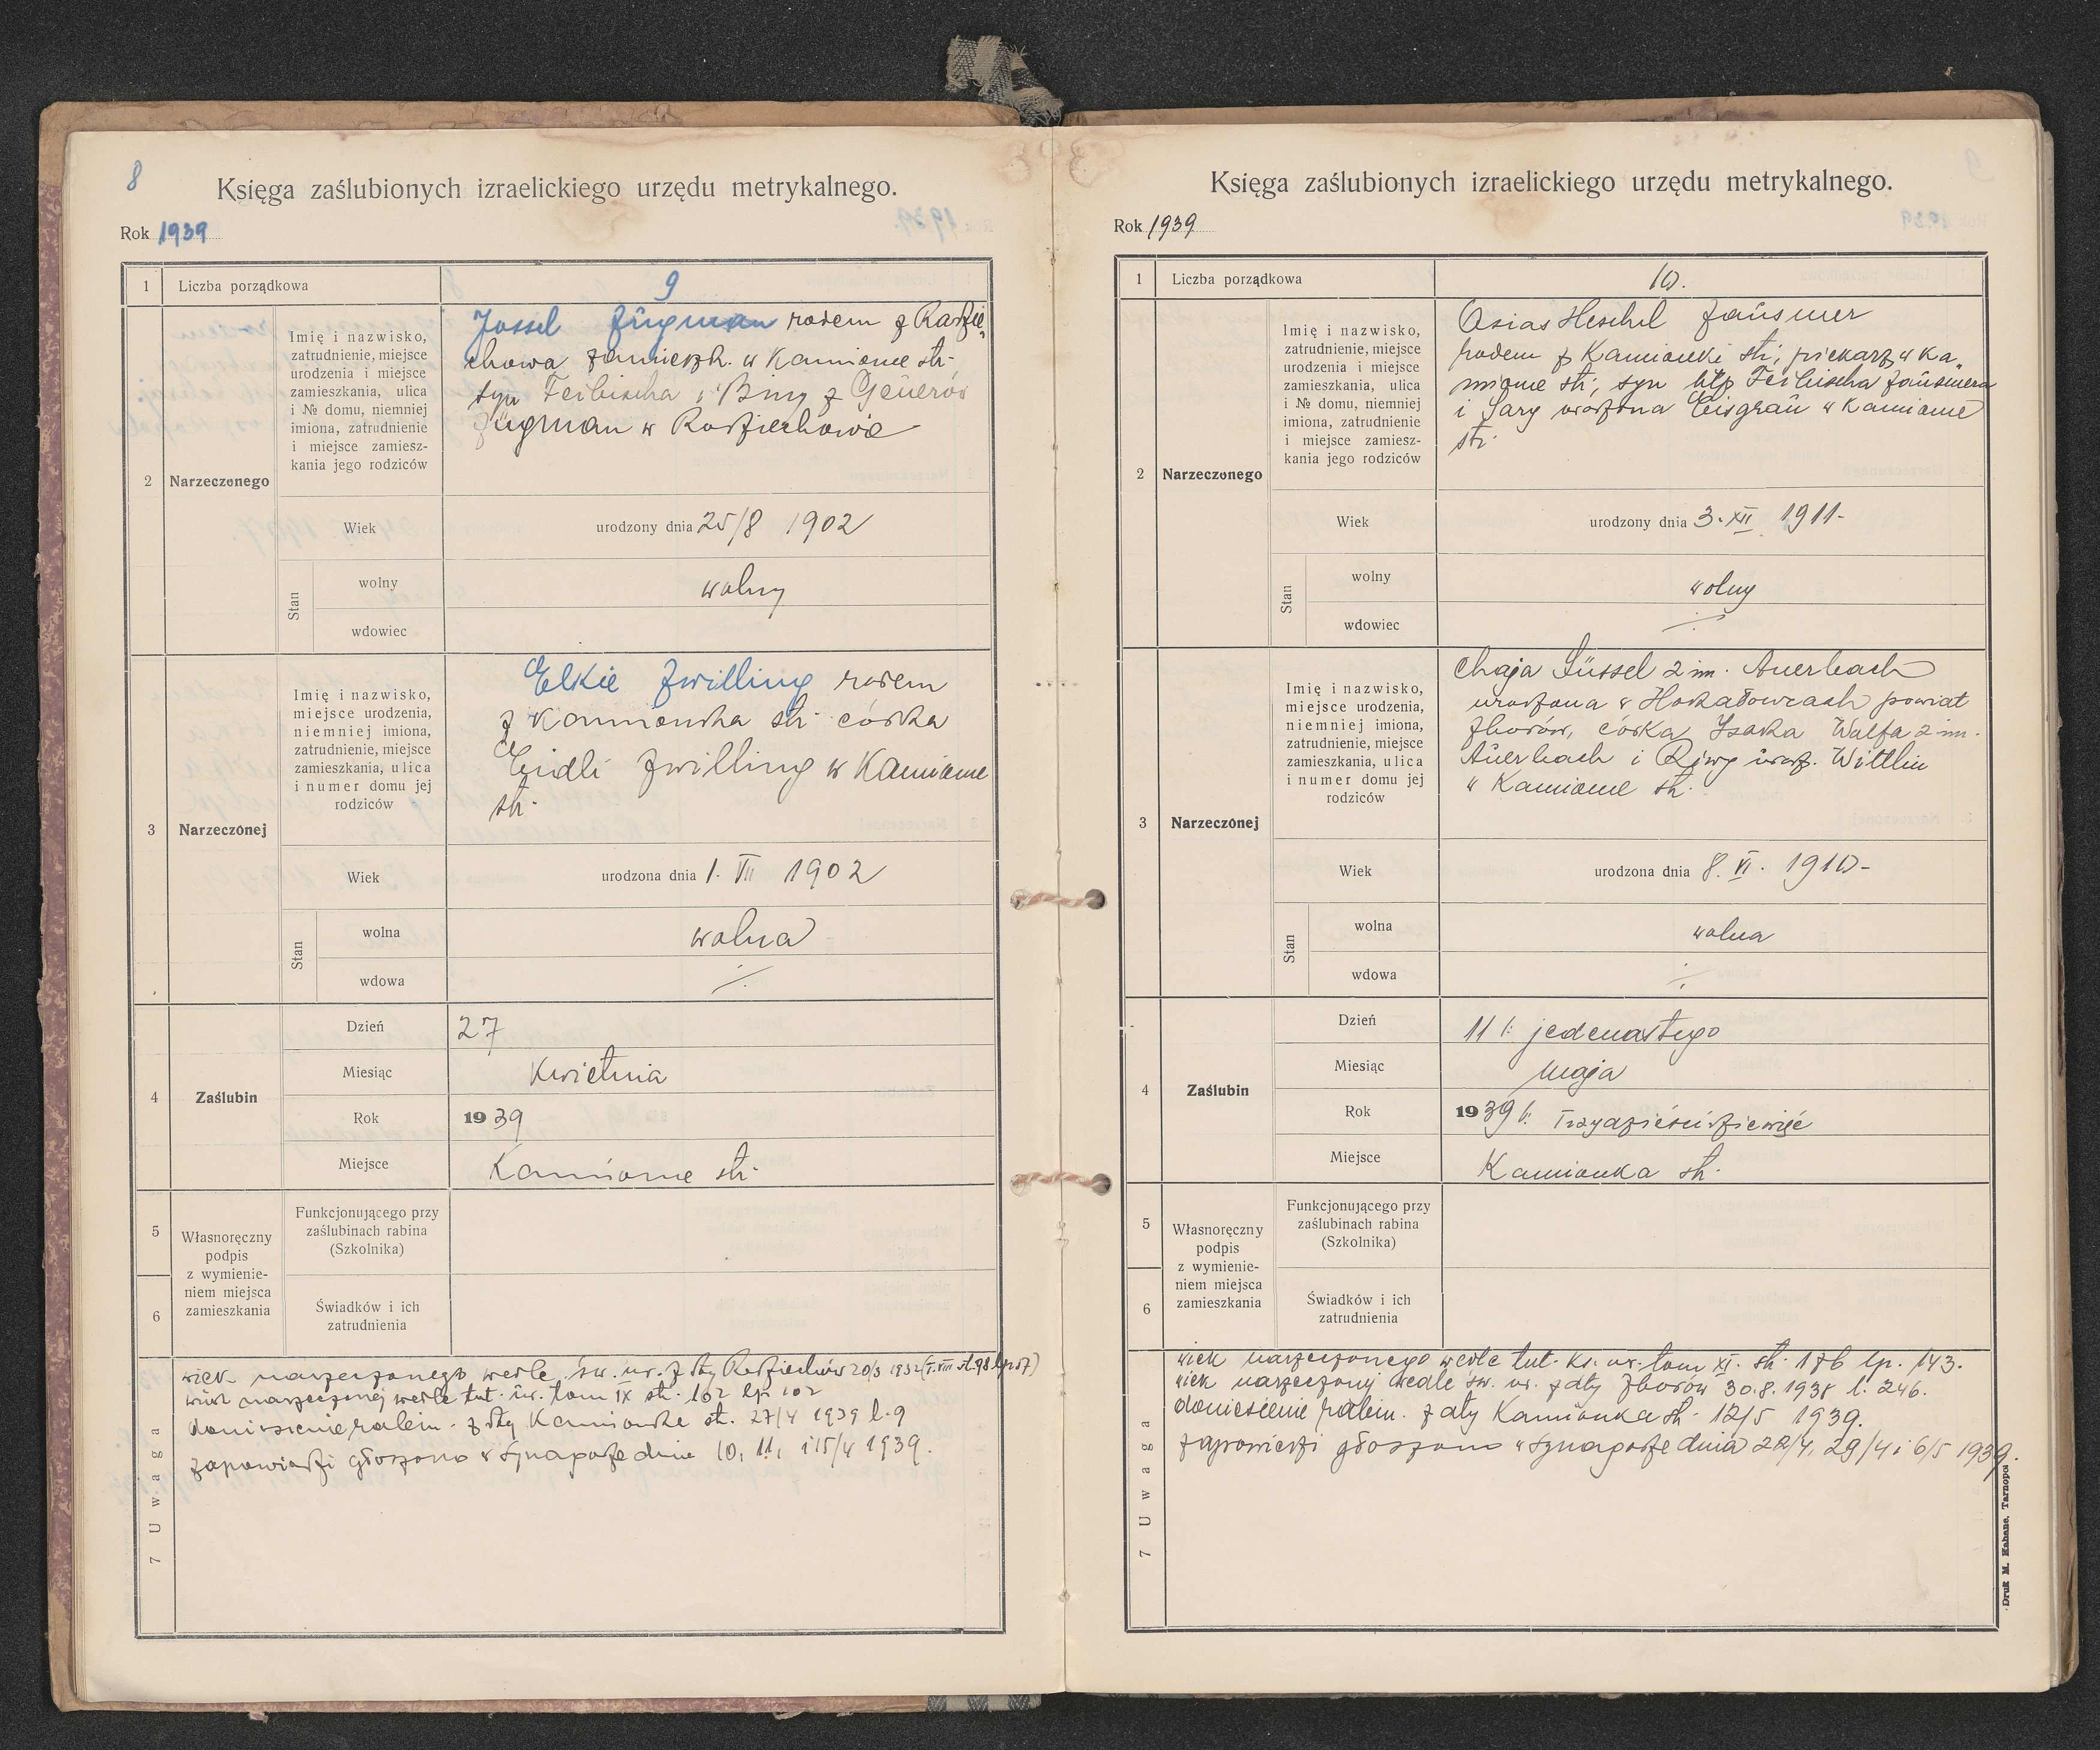 8
Księga zaślubionych izraelickiego urzędu metrykalnego.
Rok 1939
1 Liczba porządkowa 9
2 Narzeczonego
Imię i nazwisko,
zatrudnienie, miejsce
urodzenia i miejsce
zamieszkania, ulica
i № domu, niemniej
imiona, zatrudnienie
i miejsce zamiesz-
kania jego rodziców
Jossel Zügman rodem z Radzie„
chowa zamieszk. w Kamionce str.
syn Feibischa i Biny z Geuerów
Zügman w Radziechowie
Wiek urodzony dnia 25/8 1902
Stan
wolny wolny
wdowiec
3 Narzeczonej
Imię i nazwisko,
miejsce urodzenia,
niemniej imiona,
zatrudnienie, miejsce
zamieszkania, ulica
i numer domu jej
rodziców
Elkie Zwilling rodem
z Kamionka str. córka
Eidli Zwilling w Kamionce
str.
Wiek urodzona dnia 1. VII 1902
Stan
wolna wolna
wdowa ⁒
4 Zaślubin
Dzień 27
Miesiąc Kwietnia
Rok 1939
Miejsce Kamionce str.
5
6
Własnoręczny
podpis
z wymienie-
niem miejsca
zamieszkania
Funkcjonującego przy
zaślubinach rabina
(Szkolnika)
Świadków i ich
zatrudnienia
7 Uwaga
wiek narzeczonego wedle św. ur. z dty Radziechów 20/3 1932 (T. VIII st. 98 lp 57)
wiek narzeczonej wedle tut. ur. tom IX str. 102 lp 102
doniesienie rabin. z dty Kamionka str. 27/4 1939 l. 9
zapowiedzi głoszono w synagodze dnia 10, 11, i 15/4 1939.
Księga zaślubionych izraelickiego urzędu metrykalnego.
Rok 1939
1 Liczba porządkowa 10.
2 Narzeczonego
Imię i nazwisko,
zatrudnienie, miejsce
urodzenia i miejsce
zamieszkania, ulica
i № domu, niemniej
imiona, zatrudnienie
i miejsce zamiesz-
kania jego rodziców
Osias Heschel Zausmer
rodem z Kamionki str., piekarz w Ka„
mionce str., syn błp Feibischa Zausmera
i Sary urodzona Eisgrau w Kamionce
str.
Wiek urodzony dnia 3. XII 1911.
Stan
wolny wolny
wdowiec ⁒
3 Narzeczonej
Imię i nazwisko,
miejsce urodzenia,
niemniej imiona,
zatrudnienie, miejsce
zamieszkania, ulica
i numer domu jej
rodziców
Chaja Süssel 2 im. Auerbach
urodzona w Hokałowcach powiat
Zborów, córka Izaka Wolfa 2 im.
Auerbach i Rywy urodz. Wittlin
w Kamionce str.
Wiek urodzona dnia 8. VI. 1910.
Stan
wolna wolna
wdowa ⁒
4 Zaślubin
Dzień 11 /: jedenastego
Miesiąc maja
Rok 1939 /: Trzydzieścidziewięć
Miejsce Kamionka str.
5
6
Własnoręczny
podpis
z wymienie-
niem miejsca
zamieszkania
Funkcjonującego przy
zaślubinach rabina
(Szkolnika)
Świadków i ich
zatrudnienia
7 Uwaga
wiek narzeczonego wedle tut. ks. ur. tom XI. str. 176 lp. 143.
wiek narzeczonej wedle św. ur. z dty Zborów 30.8.1938 l. 246.
doniesienie rabin. z dty Kamionka str. 12/5 1939.
zapowiedzi głoszono w synagodze dnia 22/4, 29/4 i 6/5 1939.
Druk M. Kahane, Tarnopol